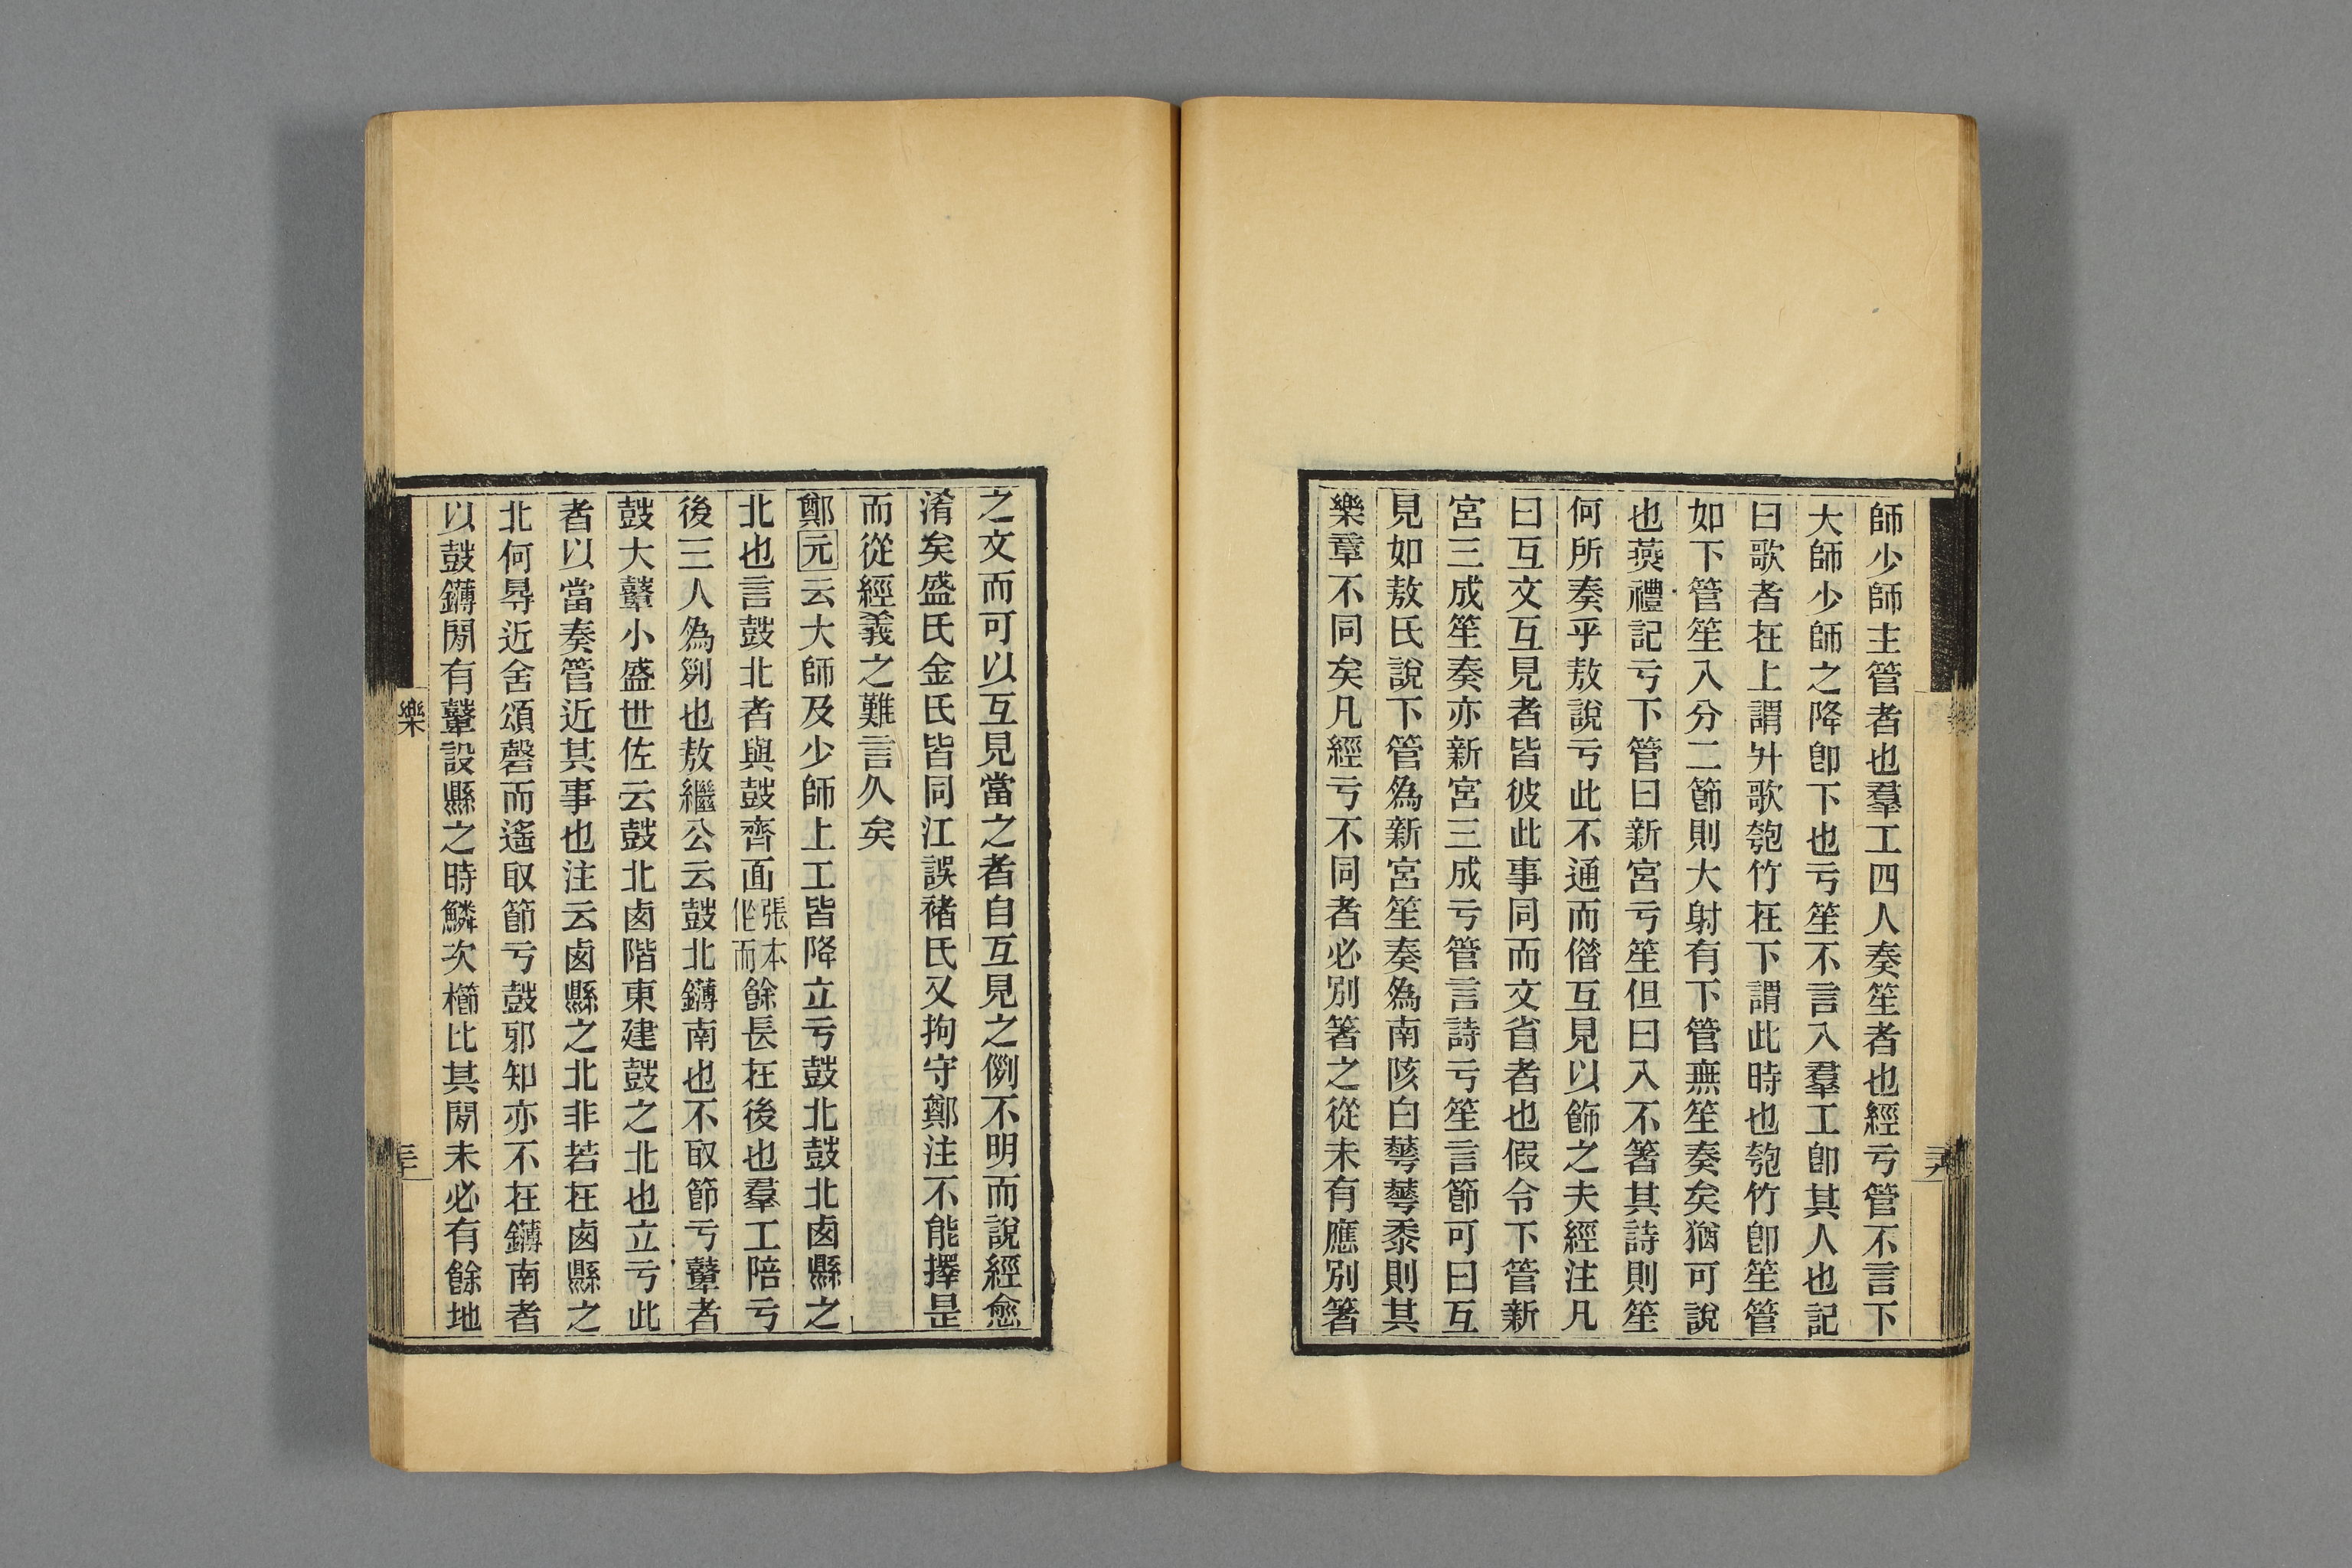 師少師主管者也羣工四人奏笙者也經亏管不言下
大師少師之降卽下也亏笙不言入羣工卽其人也記
曰歌者在上謂升歌匏竹在下謂此時也匏竹卽笙管
如下管笙入分二節則大射有下管無笙奏矣猶可說
也燕禮記亏下管曰新宮亏笙但曰入不箸其詩則笙
何所奏乎敖說亏此不通而僣互見以飾之夫經注凡
曰互文互見者皆彼此事同而文省者也假令下管新
宮三成笙奏亦新宮三成亏管言詩亏笙言節可曰互
見如敖氏說下管爲新宮笙奏爲南陔白蕚蕚黍則其
樂章不同矣凡經亏不同者必別箸之從未有應別箸
之文而可以互見當之者自互見之例不明而說經愈
淆矣盛氏金氏皆同江誤褚氏又拘守鄭注不能擇是
而從經義之難言久矣
鄭元云大師及少師上工皆降立亏鼓北鼓北鹵縣之
北也言鼓北者與鼓齊面張本作而餘長在後也羣工陪亏
後三人爲列也敖繼公云鼓北鑮南也不取節亏鼙者
鼓大鼙小盛世佐云鼓北鹵階東建鼓之北也立亏此
者以當奏管近其事也注云鹵縣之北非若在鹵縣之
北何㝵近舍頌磬而遙取節亏鼓邪知亦不在鑮南者
以鼓鑮閒有鼙設縣之時鱗次櫛比其閒未必有餘地
樂